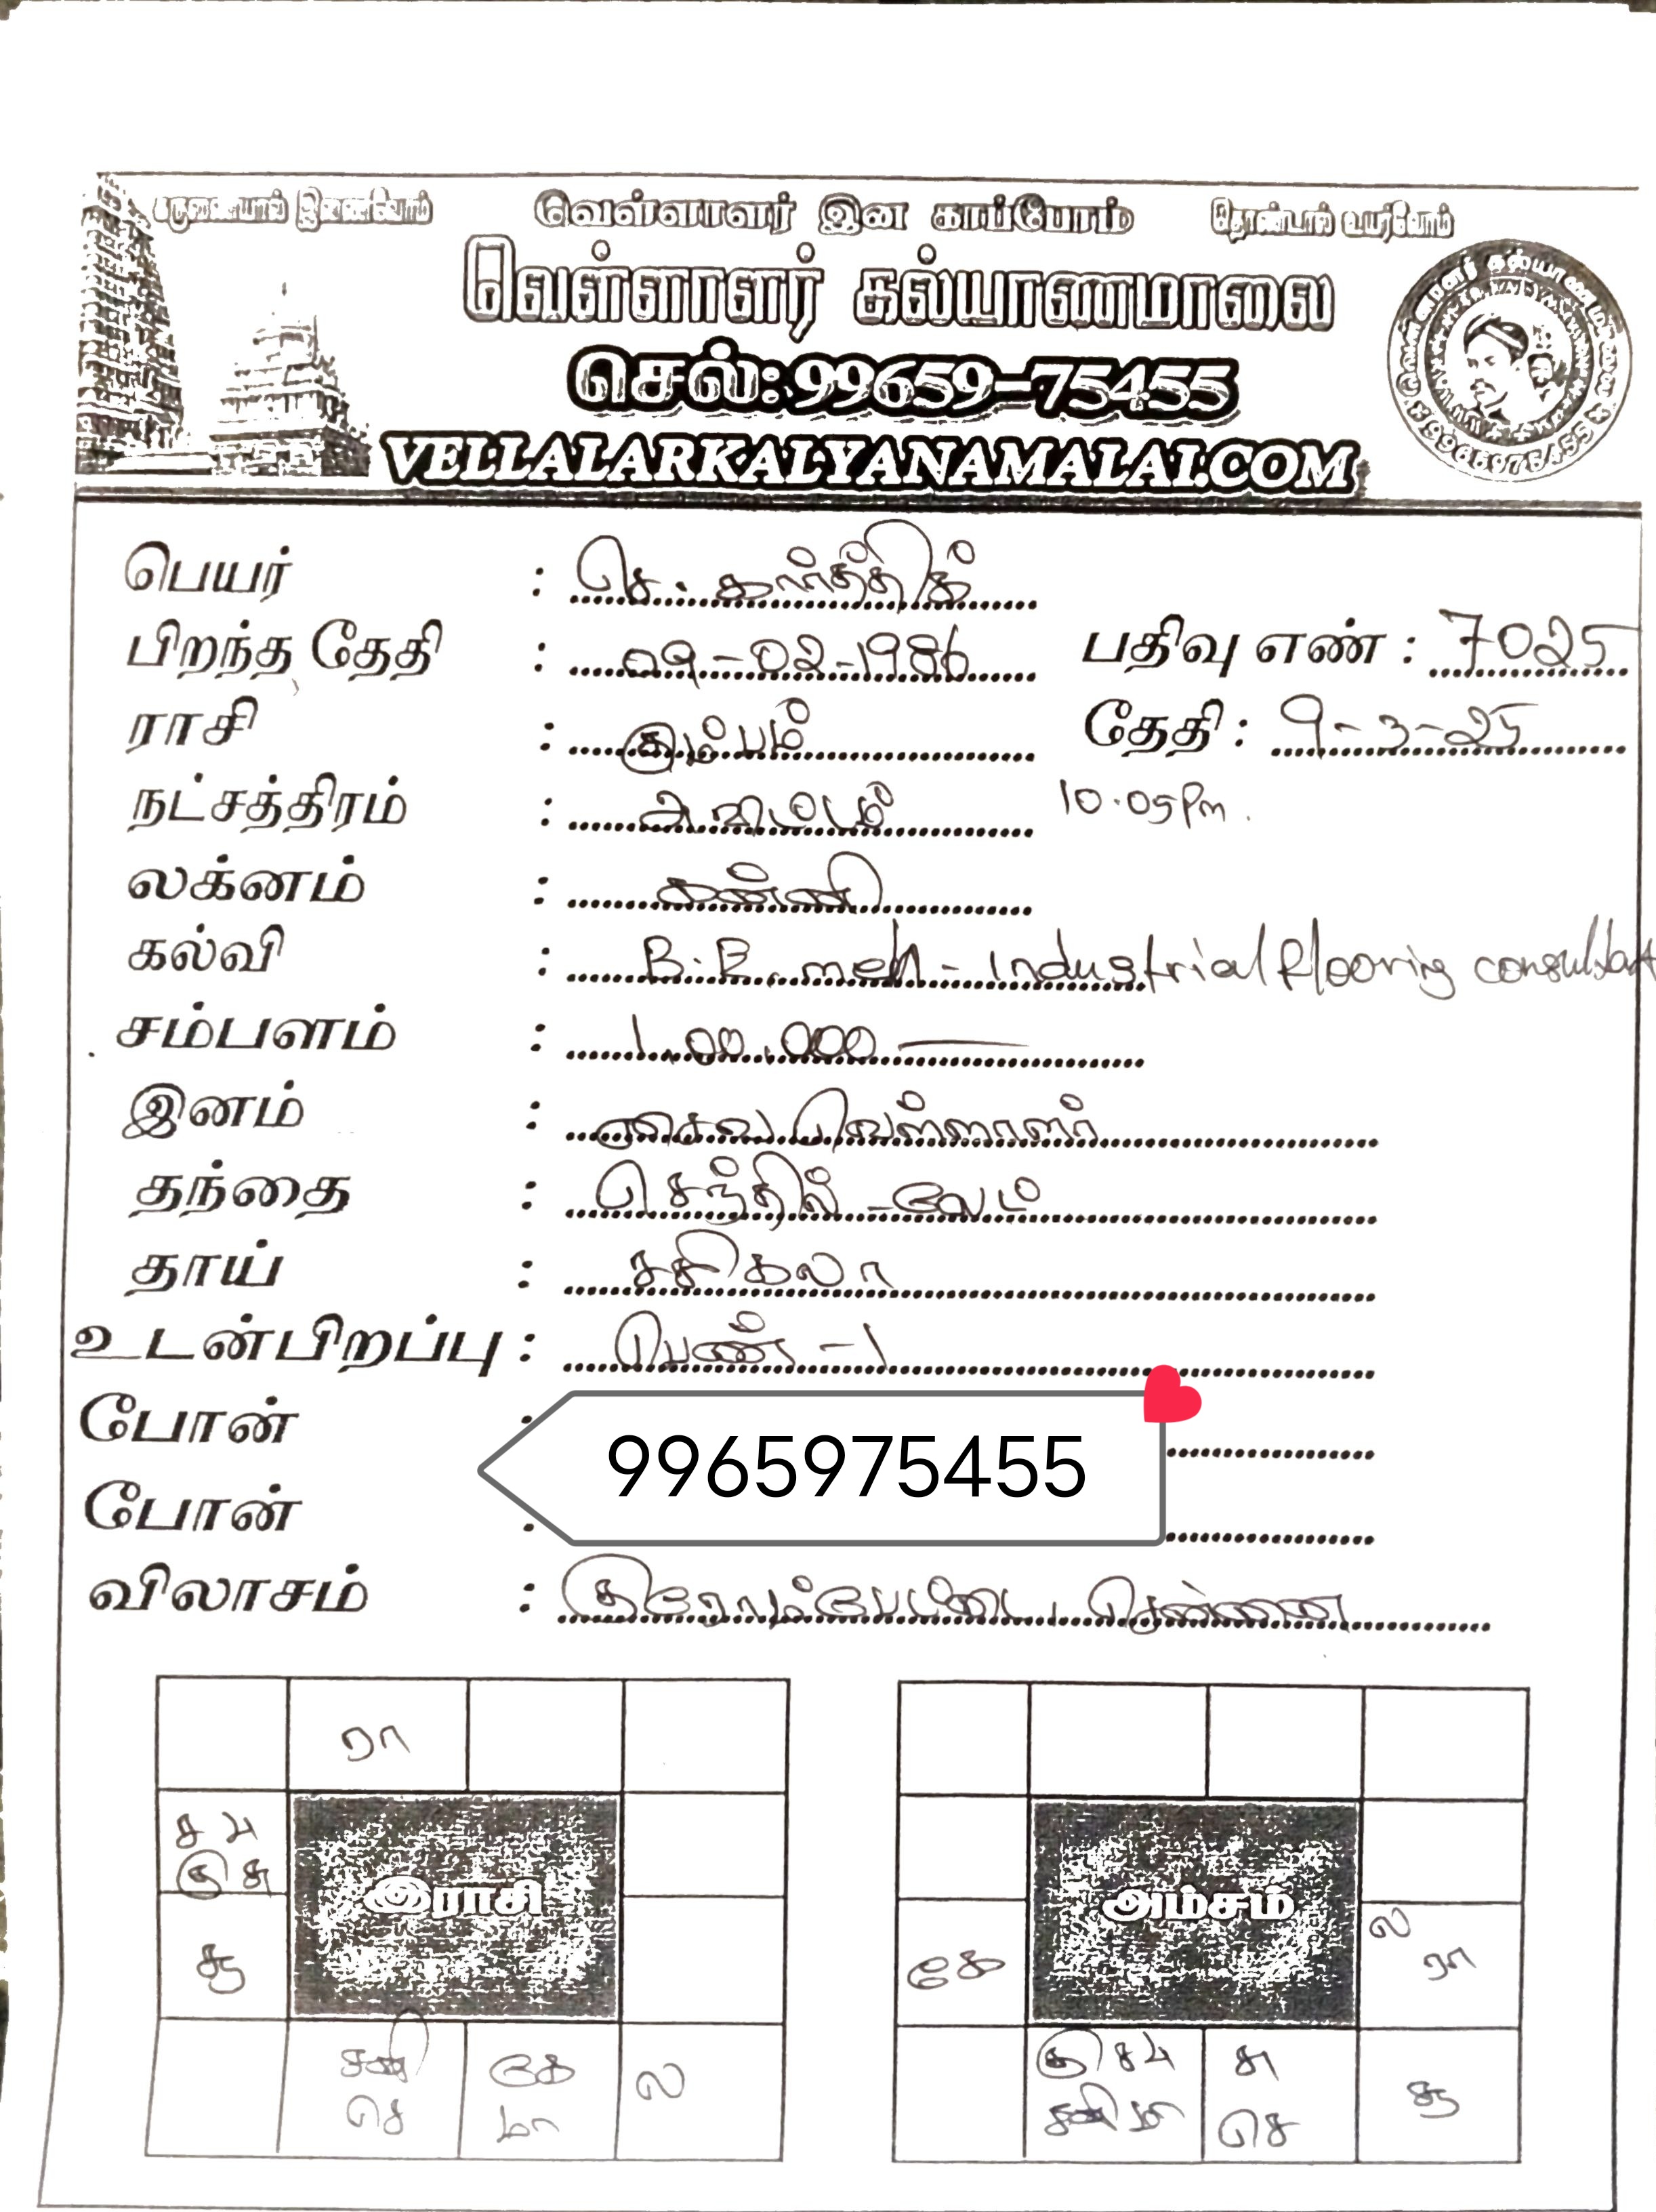 கருணையால் இணைவோம் வெள்ளாளர் இன காப்போம் தொண்டால் உயர்வோம்
வெள்ளாளர் கல்யாணமாலை
செல்:99659-75455
VELLALARKALYANAMALAI.COM
பெயர் : செ. கார்த்திக்
பிறந்த தேதி : 09-02-1986 பதிவு எண் : 7025
ராசி : கும்பம் தேதி : 9-3-25
நட்சத்திரம் : அவிட்டம் 10.05 Pm.
லக்னம் : கன்னி
கல்வி : B.E. mech - Industrial flooring consultant
சம்பளம் : 1,00,000
இனம் : சைவ வெள்ளாளர்
தந்தை : செந்தில் -லேட்
தாய் : சசிகலா
உடன்பிறப்பு : பெண் -1
போன் :
9965975455
போன் :
விலாசம் : குரோம்பேட்டை, சென்னை
ரா
ச பு
கு சு
இராசி
சூ
சனி
செ
கே
மா
ல
அம்சம்
கே
ல
ரா
கு ச பு
சனி மா
சு
செ
சூ